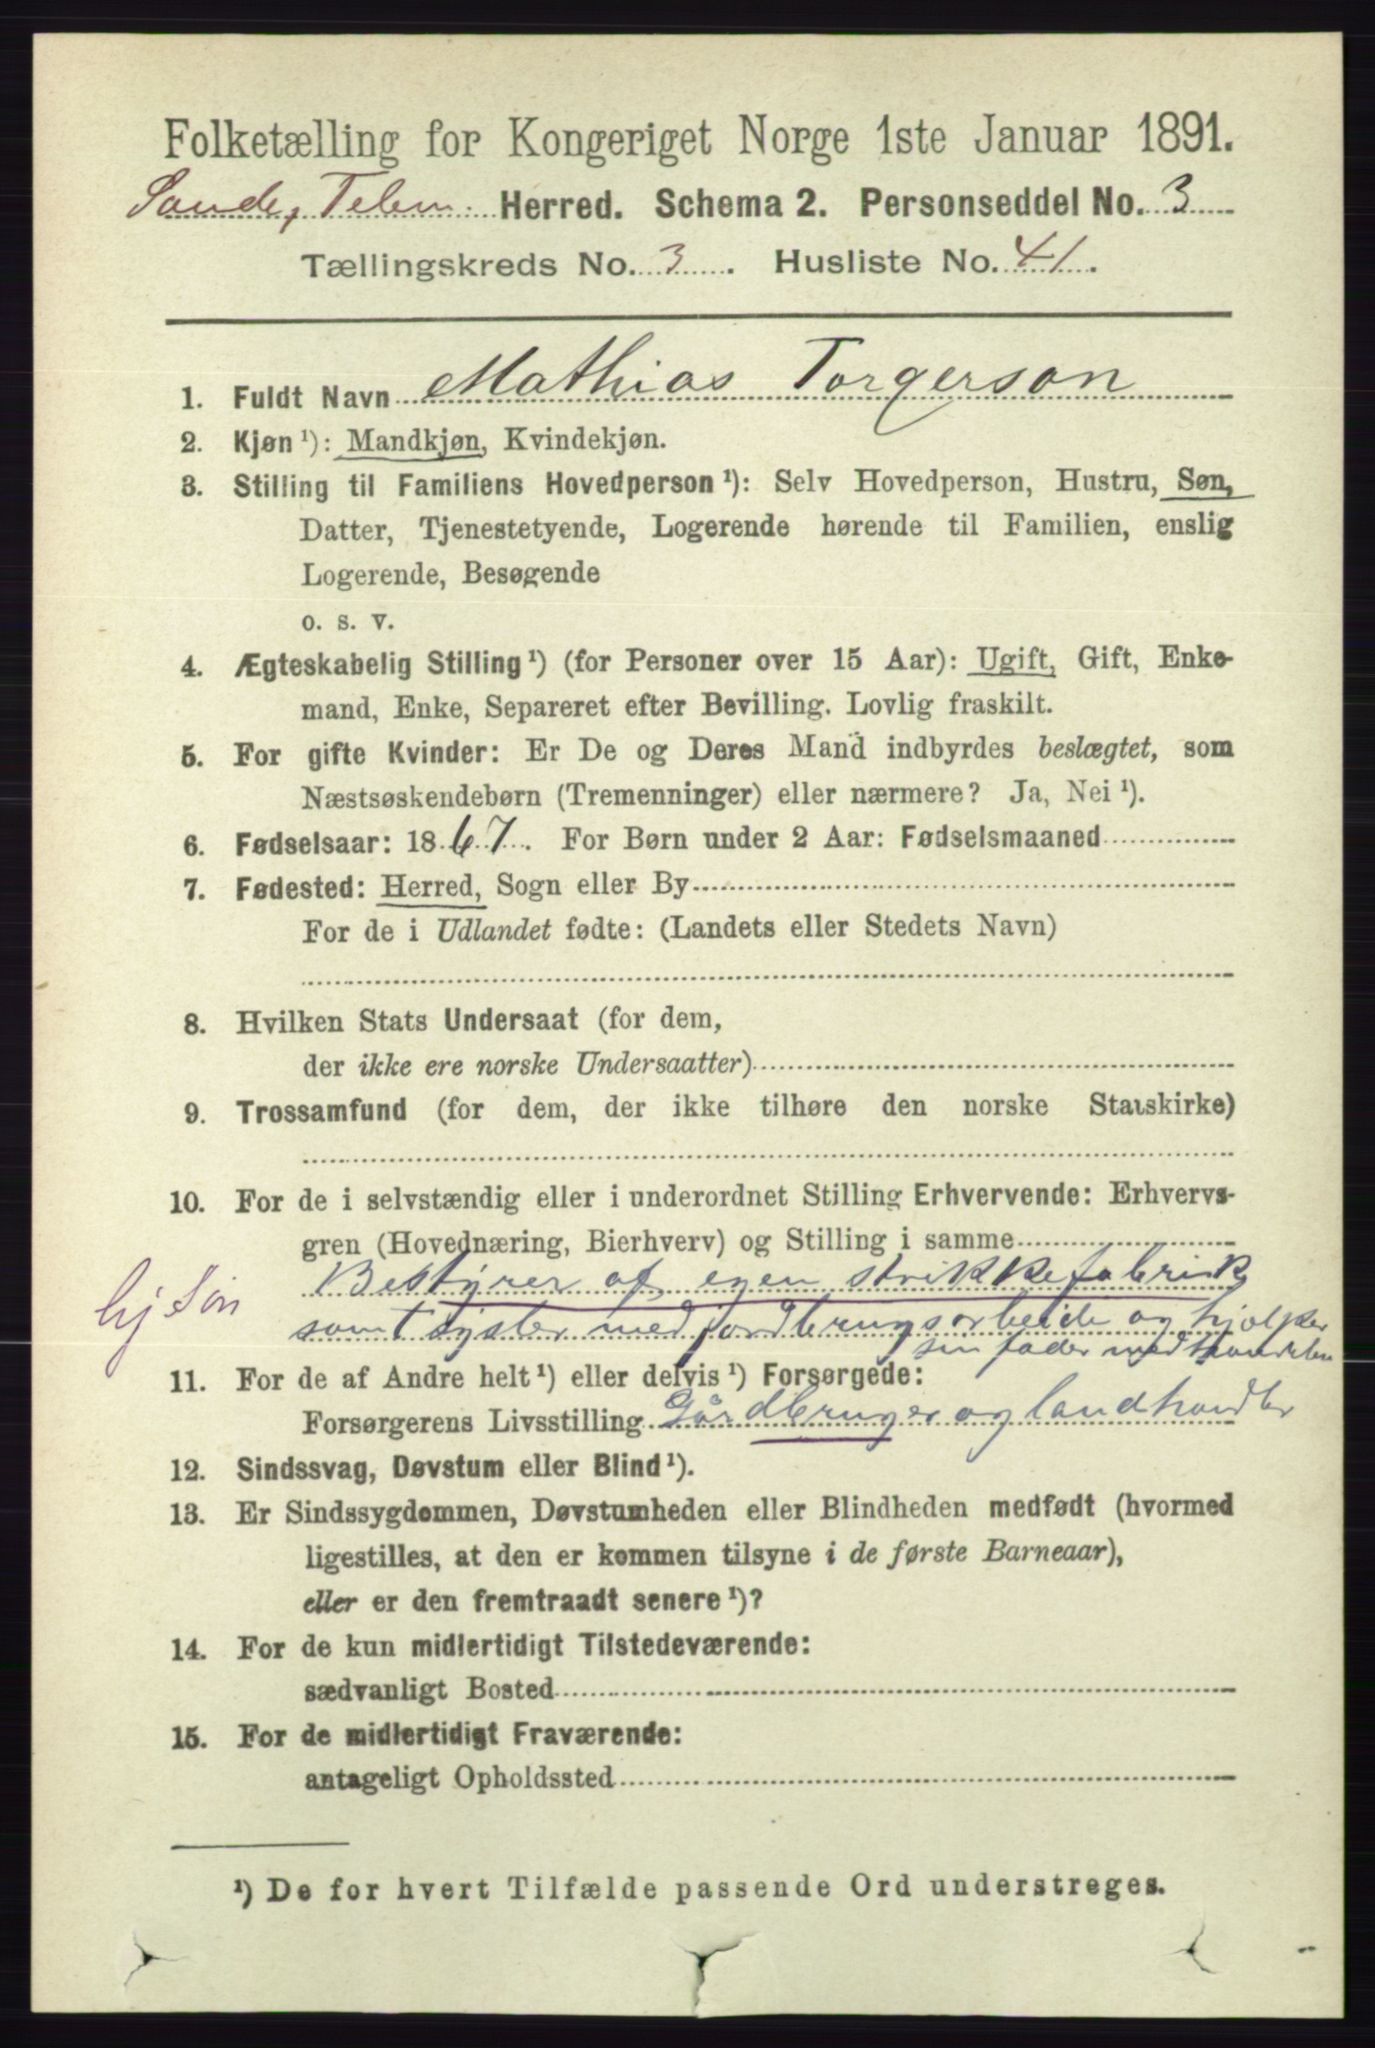 Folketælling for Kongeriget Norge 1ste Januar 1891.
Telem Herred. Schema 2. Personseddel No. 3
Tællingskreds No. 3. Husliste No. 41.
1. Fuldt Navn Mathias Torgerson
2. Kjøn ¹): Mandkjøn, Kvindekjøn.
3. Stilling til Familiens Hovedperson ¹): Selv Hovedperson, Hustru, Søn,
Datter, Tjenestetyende, Logerende hørende til Familien, enslig
Logerende, Besøgende
o. s. v.
4. Ægteskabelig Stilling ¹) (for Personer over 15 Aar): Ugift, Gift, Enke-
mand, Enke, Separeret efter Bevilling. Lovlig fraskilt.
5. For gifte Kvinder: Er De og Deres Mand indbyrdes beslægtet, som
Næstsøskendebørn (Tremenninger) eller nærmere? Ja, Nei ¹).
6. Fødselsaar: 1867. For Børn under 2 Aar: Fødselsmaaned
7. Fødested: Herred, Sogn eller By
For de i Udlandet fødte: (Landets eller Stedets Navn)
8. Hvilken Stats Undersaat (for dem,
der ikke ere norske Undersaatter)
9. Trossamfund (for dem, der ikke tilhøre den norske Statskirke)
10. For de i selvstændig eller i underordnet Stilling Erhvervende: Erhvervs-
gren (Hovednæring, Bierhverv) og Stilling i samme
hj Søn
Bestyrer af egen strikkefabrik
samt sysler med jordbrugsarbeide og hjælper
sin fader med handelen
11. For de af Andre helt ¹) eller delvis ¹) Forsørgede:
Forsørgerens Livsstilling Gårdbruger og landhandler
12. Sindssvag, Døvstum eller Blind ¹).
13. Er Sindssygdommen, Døvstumheden eller Blindheden medfødt (hvormed
ligestilles, at den er kommen tilsyne i de første Barneaar),
eller er den fremtraadt senere ¹)?
14. For de kun midlertidigt Tilstedeværende:
sædvanligt Bosted
15. For de midlertidigt Fraværende:
antageligt Opholdssted
¹) De for hvert Tilfælde passende Ord understreges.